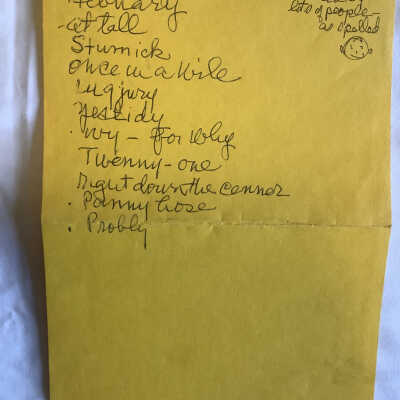 Febuary
lots of people –
- at tall
Stumick
once in a wile
Lugjury
Yestidy
· Wy – for why
Twenny-one
Right down the cenner
· Panny hose
· Probly